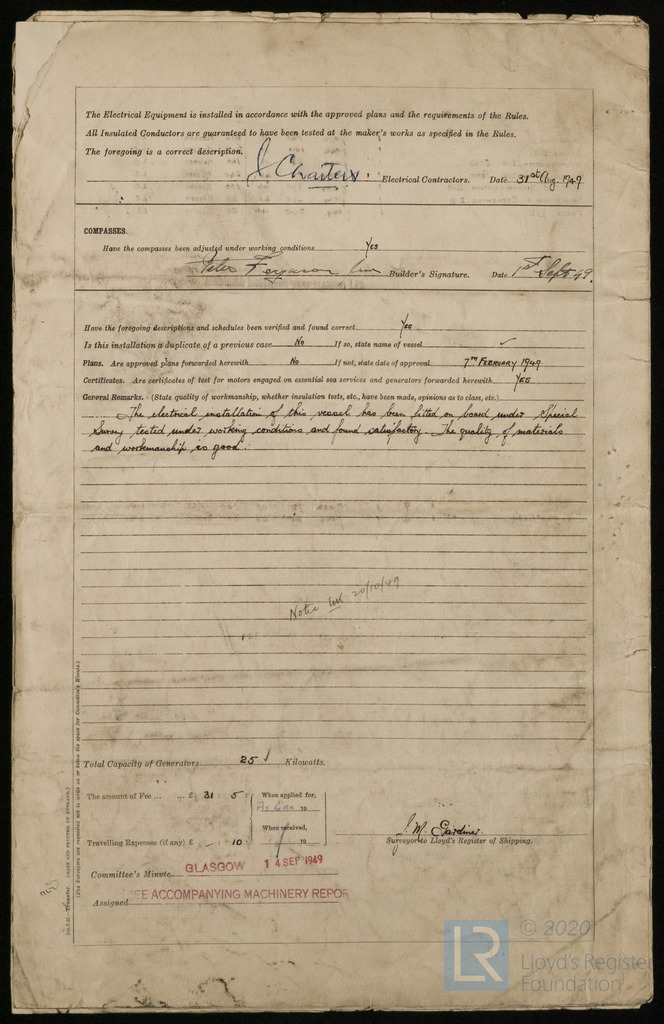 The Electrical Equipment is installed in accordance with the approved plans and the requirements of the Rules.
All Insulated Conductors are guaranteed to have been tested at the maker's works as specified in the Rules.
The foregoing is a correct description.
J. Charters. Electrical Contractors. Date 31st Aug. 1949
COMPASSES.
Have the compasses been adjusted under working conditions Yes
Peter Ferguson Builder's Signature. Date 1st Sept 49.
Have the foregoing descriptions and schedules been verified and found correct Yes
Is this installation a duplicate of a previous case No If so, state name of vessel ✓
Plans. Are approved plans forwarded herewith No If not, state date of approval 7TH FEBRUARY 1949
Certificates. Are certificates of test for motors engaged on essential sea services and generators forwarded herewith YES
General Remarks. (State quality of workmanship, whether insulation tests, etc., have been made, opinions as to class, etc.)
The electrical installation of this vessel has been fitted on board under Special
Survey tested under working conditions and found satisfactory. The quality of materials
and workmanship is good.
Noted 20/10/49
Total Capacity of Generators 25 Kilowatts.
The amount of Fee ... ... £ 31 : 5 :
When applied for,
19
When received,
19
Travelling Expenses (if any) £ – : 10 :
J. M. Gardiner.
Surveyor to Lloyd's Register of Shipping.
Committee's Minute GLASGOW 14 SEP 1949
Assigned EE ACCOMPANYING MACHINERY REPOR
Transfer. (MADE AND PRINTED IN ENGLAND.)
(The Surveyors are requested not to write on or below the space for Committee's Minute.)
LR
© 2020
Lloyd's Register
Foundation